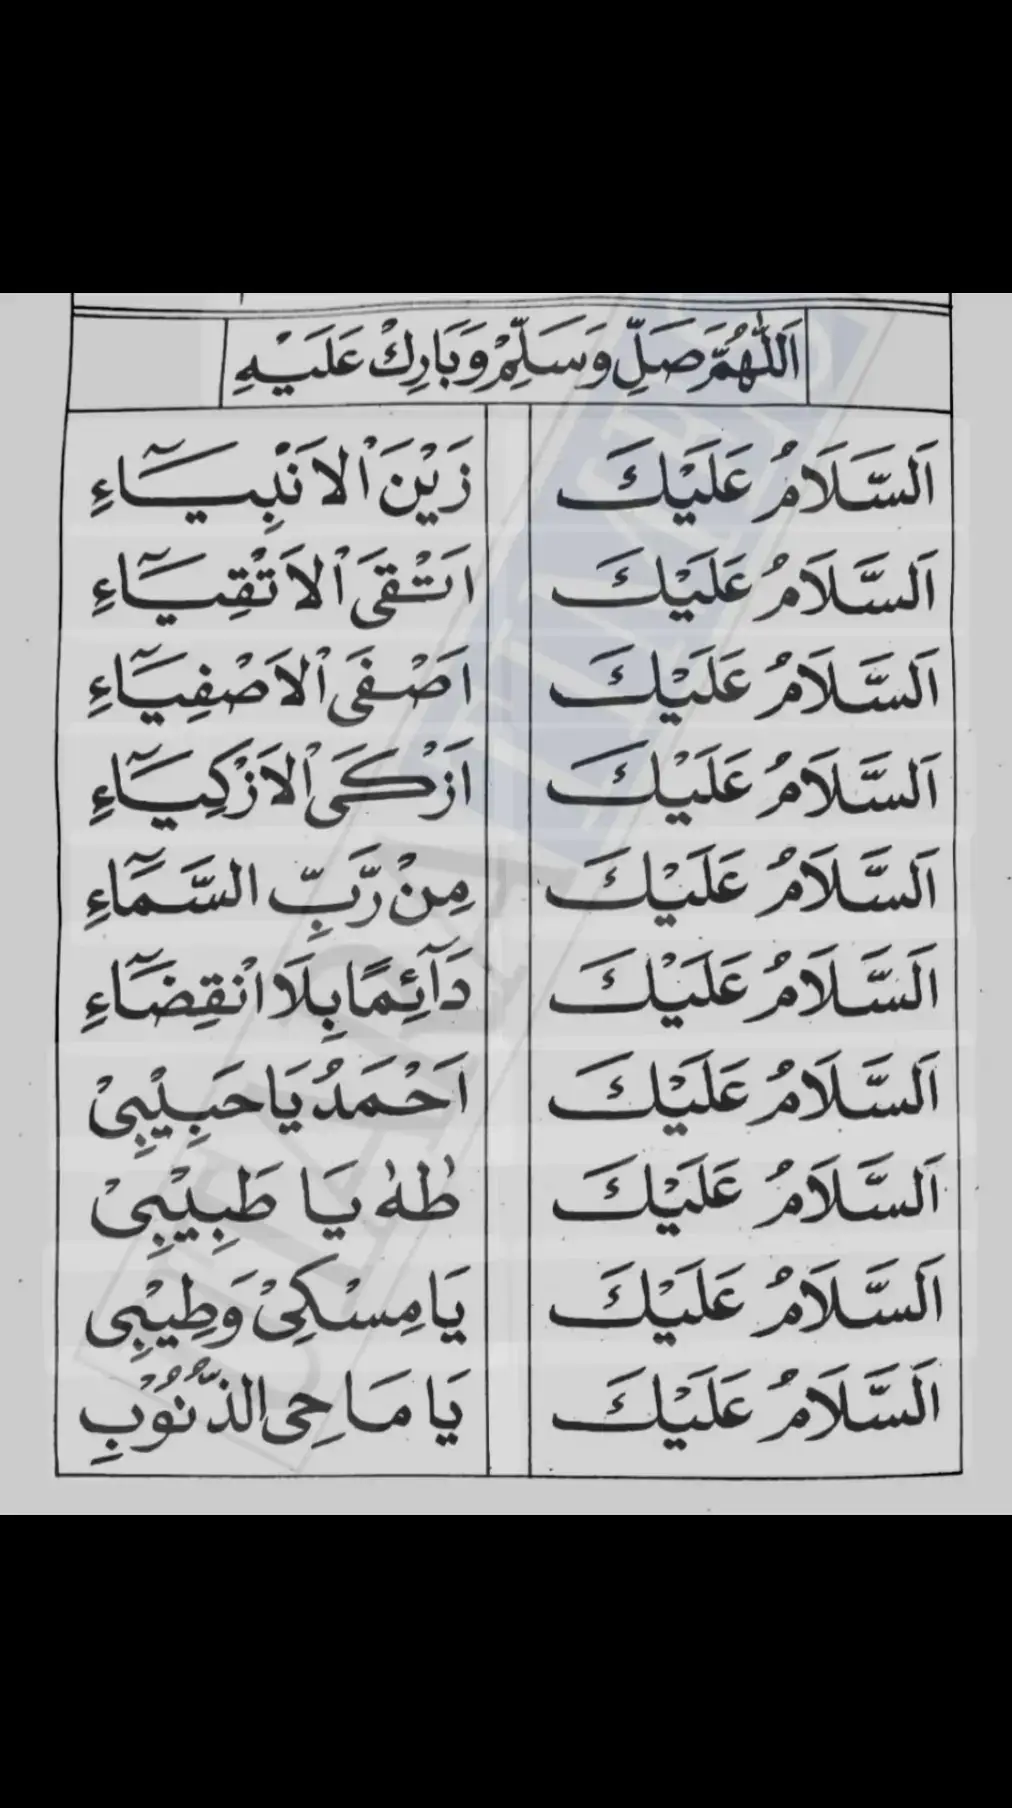 اَللّٰهُمَّ صَلِّ وَسَلِّمْ وَبَارِكْ عَلَيْهِ
اَلسَّلَامُ عَلَيْكَ زَيْنَ اْلاَنْبِيَآءِ
اَلسَّلَامُ عَلَيْكَ اَتْقَى اْلاَتْقِيَآءِ
اَلسَّلَامُ عَلَيْكَ اَصْفَى اْلاَصْفِيَآءِ
اَلسَّلَامُ عَلَيْكَ اَزْكَى اْلاَزْكِيَآءِ
اَلسَّلَامُ عَلَيْكَ مِنْ رَّبِّ السَّمَآءِ
اَلسَّلَامُ عَلَيْكَ دَآئِمًا بِلَا انْقِضَآءِ
اَلسَّلَامُ عَلَيْكَ اَحْمَدُ يَا حَبِيْبِيْ
اَلسَّلَامُ عَلَيْكَ طٰهٰ يَا طَبِيْبِيْ
اَلسَّلَامُ عَلَيْكَ يَا مِسْكِيْ وَطِيْبِي
اَلسَّلَامُ عَلَيْكَ يَا مَاحِى الذُّنُوْبِ